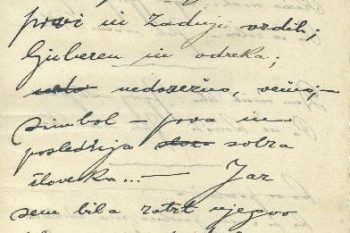 prvi in zadnji vzdih;
ljubezen in odreka;
nedosežno, večno, –
simbol – prva in
poslednja solza
človeka... – Jaz
sem bila zatrt njegov